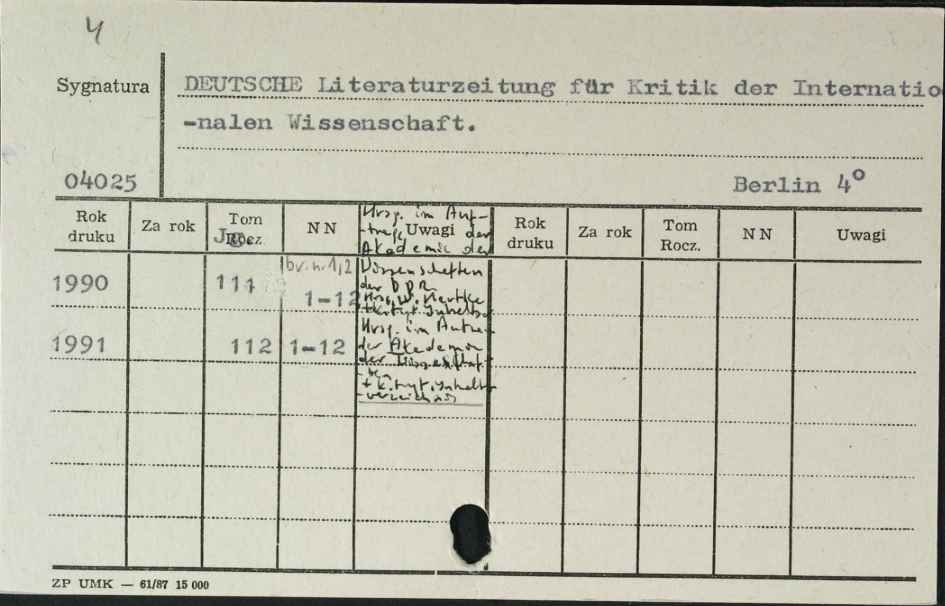 4
Sygnatura
DEUTSCHE Literaturzeitung für Kritik der Internatio
-nalen Wissenschaft.
04025
Berlin 4°
Rok druku Za rok Tom Rocz. NN Uwagi Rok druku Za rok Tom Rocz. NN Uwagi
Hrsg. im Auf-
-trage der
Akademie der
Wissenschaften
der DDR
1990 111 br.n.1,2 1-12
Hrsg. im
der Akademie
der
1991 112 1-12
+ k. tyt. Inhalts-
-verzeichnis
ZP UMK — 61/87 15 000